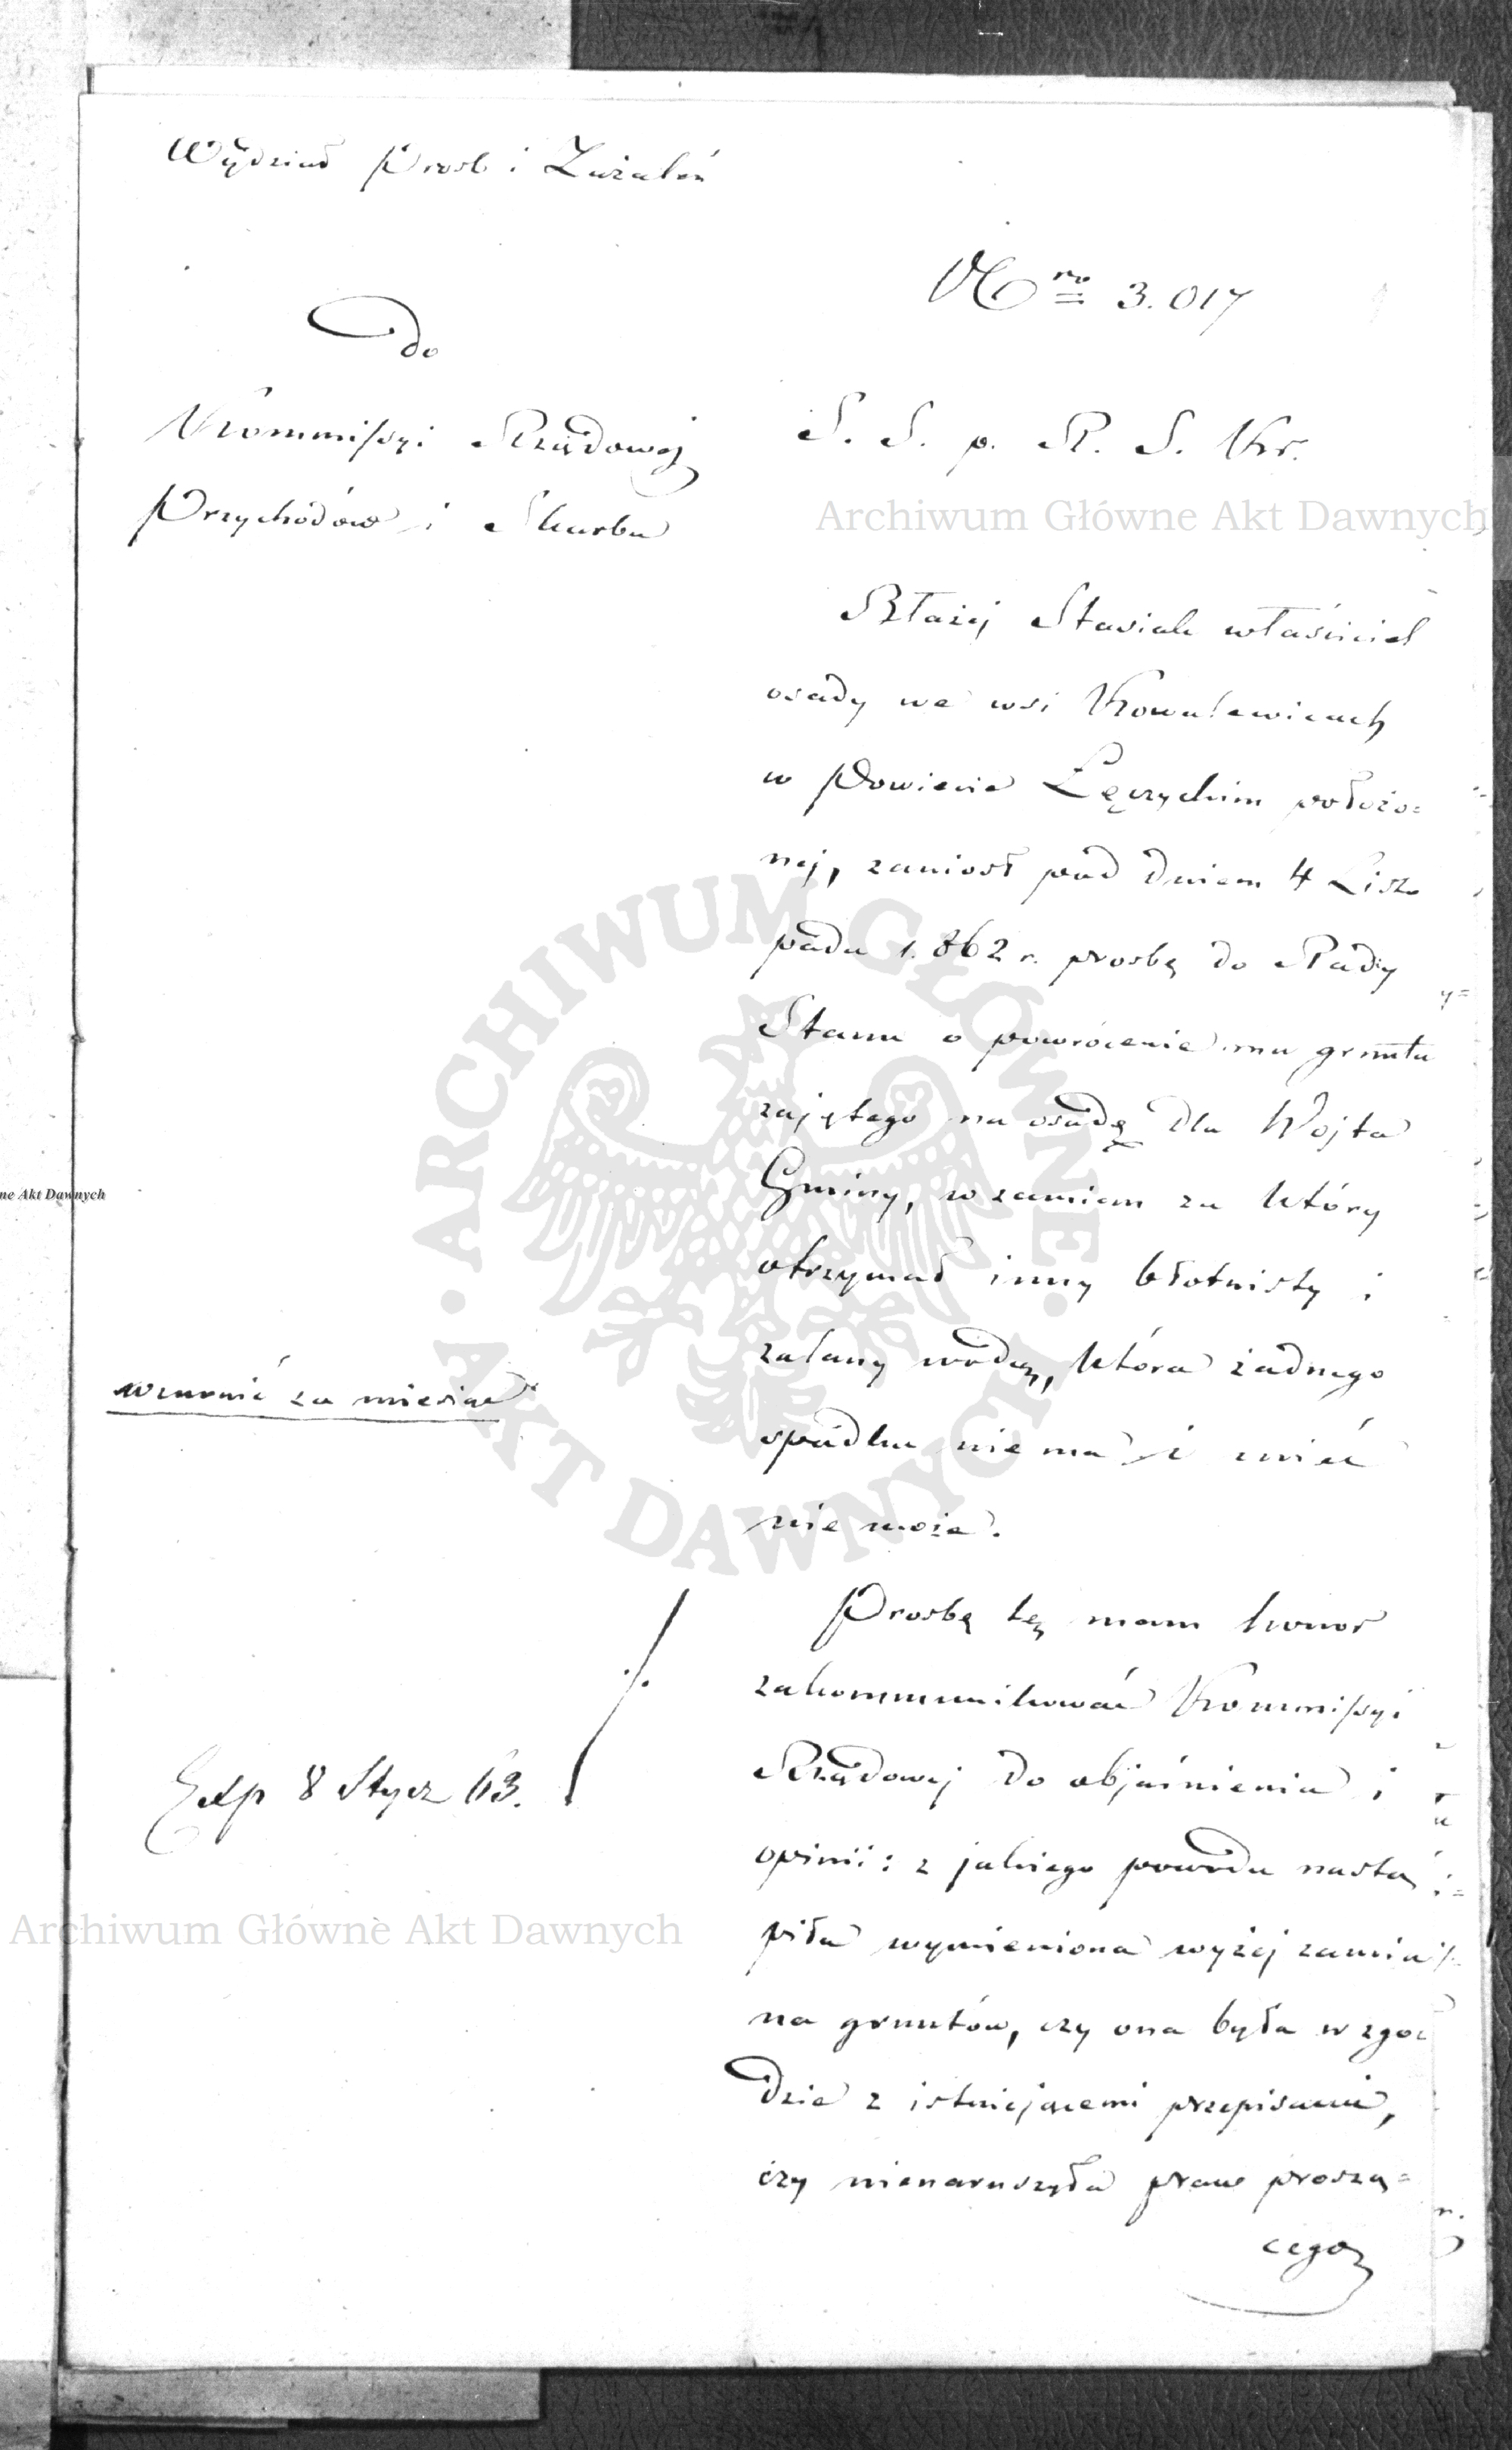 Wydział Prośb i Zażaleń
Nro 3.017
do
Kommissyi Rządowej
Przychodów i Skarbu
S. S. p. R. S. Kr.
Archiwum Główne Akt Dawnych
Błażej Stasiak właściciel
osady we wsi Kowalewicach
w Powiecie Łęczyckim położo=
nej, zaniosł pod dniem 4 Listo
pada 1.862 r. prośbę do Rady
Stanu o powrócenie mu gruntu
zajętego na osadę dla Wójta
Gminy, w zamian za który
otrzymał inny błotnisty i
zalany wodą, która żadnego
spadku nie ma i mieć
nie może.
wznowić za miesiąc
Prośbę tę mam honor
zakommunikować Kommissyi
Rządowej do objaśnienia i
opinii: z jakiego powodu nastą
piła wymieniona wyżej zamia
na gruntów, czy ona była w zgo=
dzie z istniejącemi przepisami,
czy nienaruszyła praw proszą=
cego
Exp 8 Stycz 63.
Archiwum Główne Akt Dawnych
ne Akt Dawnych
ARCHIWUM GŁÓWNE AKT DAWNYCH